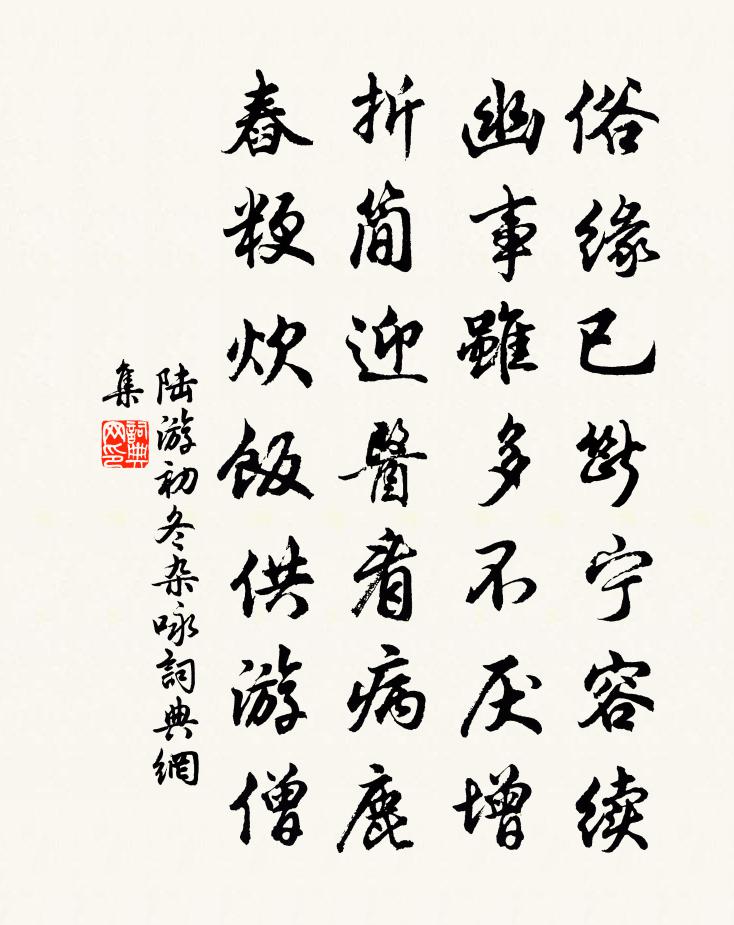 俗缘已断宁容续
幽事雖多不厌增
折简迎醫看病鹿
舂粳炊飯供游僧
陆游初冬杂咏詞典網
集
詞典
网印